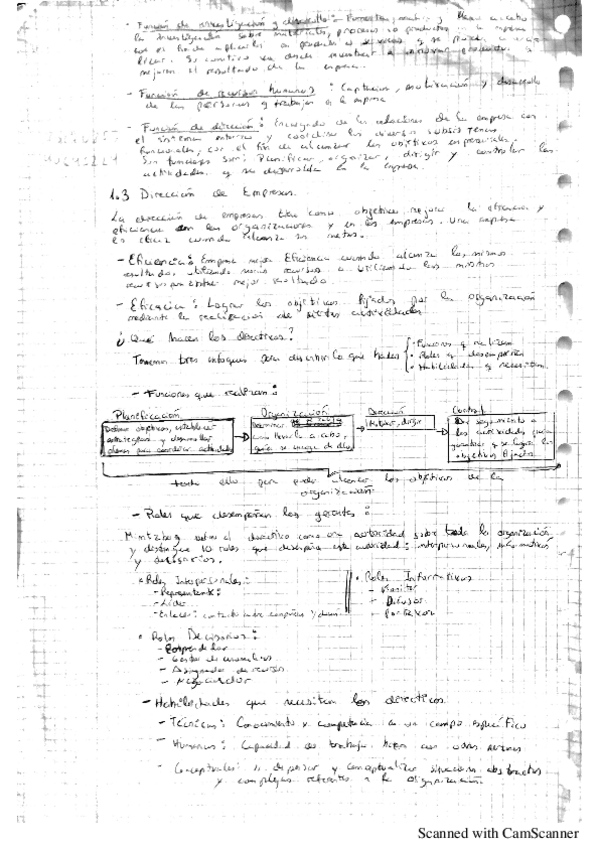 - Función de investigación y desarrollo:
la investigación sobre materiales, procesos o productos
mejoran el resultado de la empresa.
- Función de recursos humanos: Captación, motivación y desarrollo
de las personas q trabajan en la empresa
- Función de dirección: Encargado de las relaciones de la empresa con
el sistema externo y coordina los diversos subsistemas
funcionales, con el fin de alcanzar los objetivos empresariales.
Sus funciones son: Planificar, organizar, dirigir y controlar las
actividades q se desarrollan en la empresa.
1.3 Dirección de Empresas.
La dirección de empresas tiene como objetivo mejorar la eficiencia y
eficacia en las organizaciones y en las empresas. Una empresa
es eficaz cuando alcanza sus metas.
- Eficiencia: Empresa mejor Eficiencia cuando alcanza los mismos
resultados, utilizando menos recursos o utilizando los mismos
recursos mejor resultado.
- Eficacia: Lograr los objetivos fijados por la organización
mediante la realización de actividades
¿Qué hacen los directivos?
Tenemos tres enfoques para describir lo que hacen
· Funciones q realizan
· Roles q desempeñan
· Habilidades q necesitan
- Funciones que realizan:
Planificación Organización Dirección Control
Definir objetivos, establecer
estrategias y desarrollar
planes para coordinar actividades
Determinar
como llevarlo a cabo,
quien se encarga de ello
Motivar, dirigir
Dar seguimiento a
las actividades para
garantizar q se logren los
objetivos fijados
todo ello para poder alcanzar los objetivos de la
organización
- Roles que desempeñan los gerentes:
Mintzberg sobre el directivo como una autoridad sobre toda la organización
y distingue 10 roles que desempeña esta autoridad: interpersonales, informativos
y decisorios.
· Roles Interpersonales:
- Representante:
- Líder
- Enlace: contacto entre compañeros y
· Roles Informativos
- Monitor
- Difusor
- Portavoz
· Roles Decisorios:
- Emprendedor
- Gestor de anomalías
- Asignador de recursos
- Negociador
- Habilidades que necesitan los directivos
- Técnicas: Conocimiento y competencia en un campo específico
- Humanas: Capacidad de trabajar bien con otras personas
- Conceptuales: pensar y conceptualizar situaciones abstractas
y complejas referentes a la organización.
Scanned with CamScanner